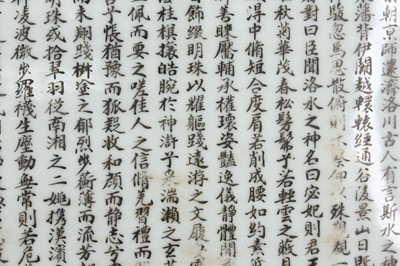 朝京師還濟洛川古人有言斯水之神
藩背伊闕越轘轅經通谷陵景山日既
駭忽焉思散俯則未察仰以殊觀覩一
對曰臣聞洛水之神名曰宓妃則君王
秋菊華茂春松髣髴兮若輕雲之蔽月
得中脩短合度肩若削成腰如約素
善睞靨輔承權瓌姿豔逸儀靜體閑
飾綴明珠以耀軀踐遠游之文履
桂棋攘皓腕於神滸兮采湍瀨之玄芝
佩而要之嗟佳人之信脩羌習禮而
悵猶豫而狐疑收和顏而靜志兮
而未翔踐椒塗之郁烈步蘅薄而流芳
明珠或拾翠羽從南湘之二姚攜漢濱
凌波微步羅襪生塵動無常則若危